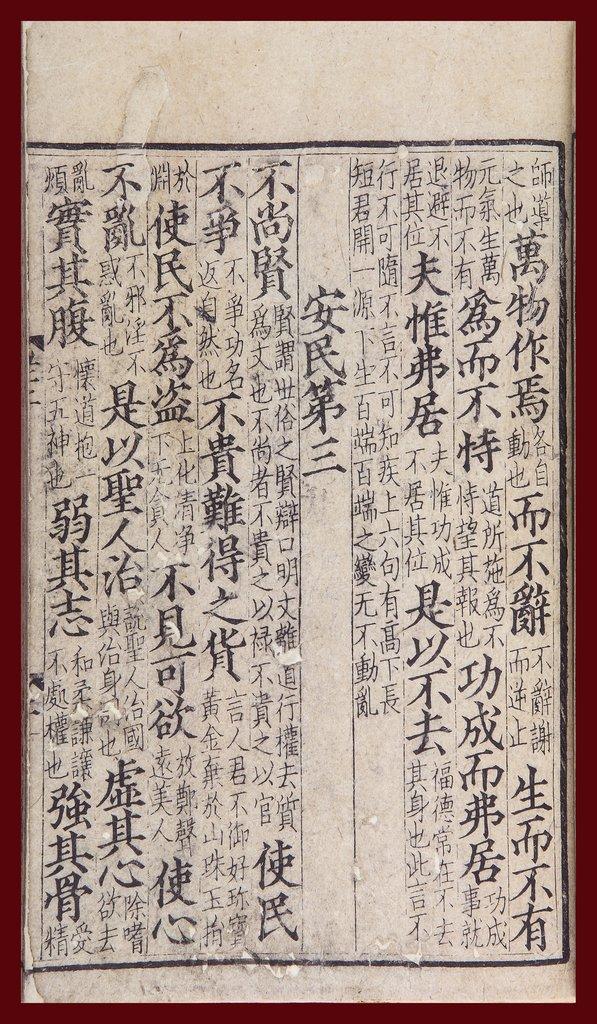 師道之也萬物作焉各自動也而不辭不辭謝而逆止生而不有
元氣生萬物而不有為而不恃道所施為不恃望其報也功成而弗居功成事就
退避不居其位夫惟弗居夫惟功成不居其位是以不去福德常在不去其身也此言不
行不可隨不言不可知疾上六句有高下長短君開一源下生百端百端之變无不動亂
安民第三
不尚賢賢謂世俗之賢辯口明文離道行權去質為文也不尚者不貴之以禄不貴之以官使民
不爭不爭功名返自然也不貴難得之貨言人君不御好珍寶黃金棄於山珠玉捐
於淵使民不為盗上化清淨下无貪人不見可欲放鄭聲遠美人使心
不亂不邪淫不惑亂也是以聖人治說聖人治國與治身也虛其心除嗜欲去
亂煩實其腹懷道抱一守五神也弱其志和柔謙讓不處權也強其骨愛精